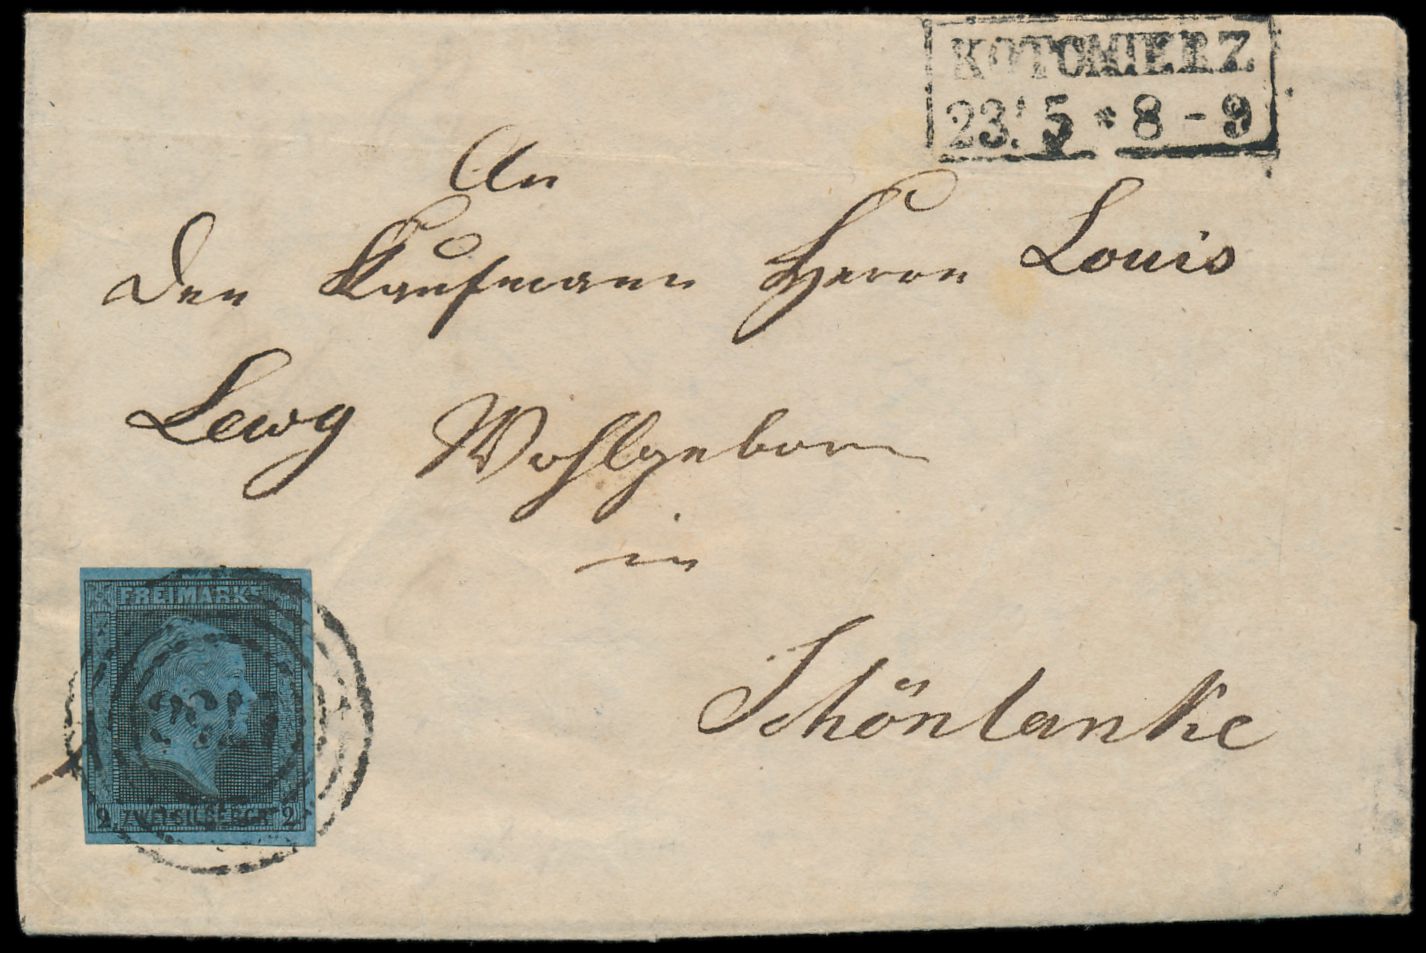 KOTOMIERZ
23. 5 * 8 - 9
An
den Kaufmann Herrn Louis
Lewy Wohlgeborn
in
Schönlanke
FREIMARKE
2 ZWEI SILBERGR 2